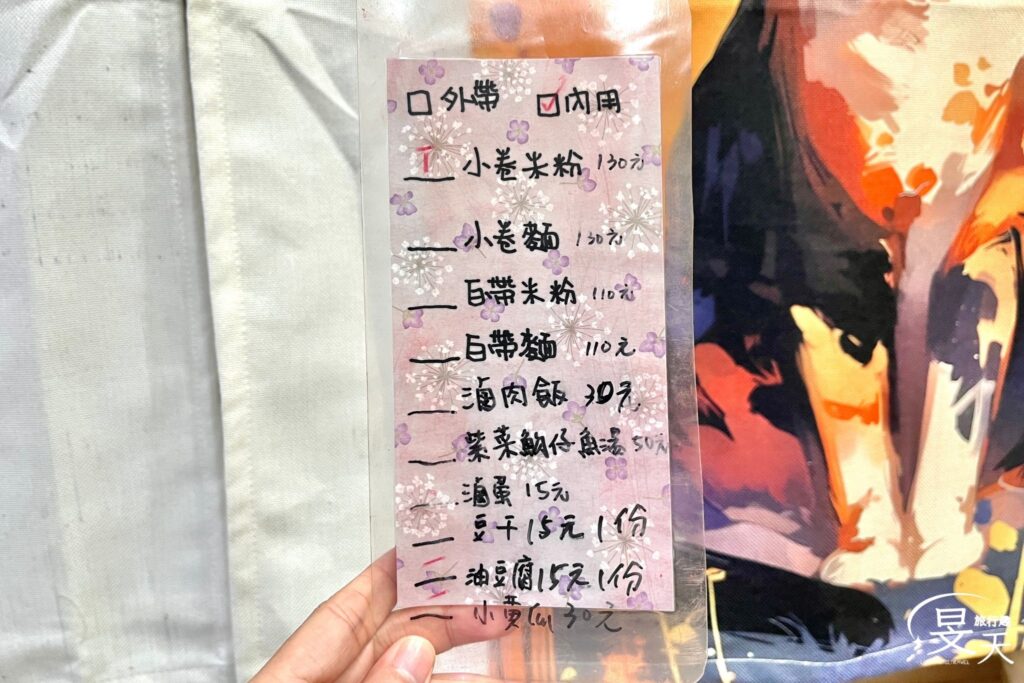 □ 外帶 ☑ 內用
小卷米粉 130元
小卷麵 130元
白帶米粉 110元
白帶麵 110元
滷肉飯 30元
紫菜魩仔魚湯 50元
滷蛋 15元
豆干 15元 1份
油豆腐 15元 1份
小黃瓜 30元
旻天
旅行趣